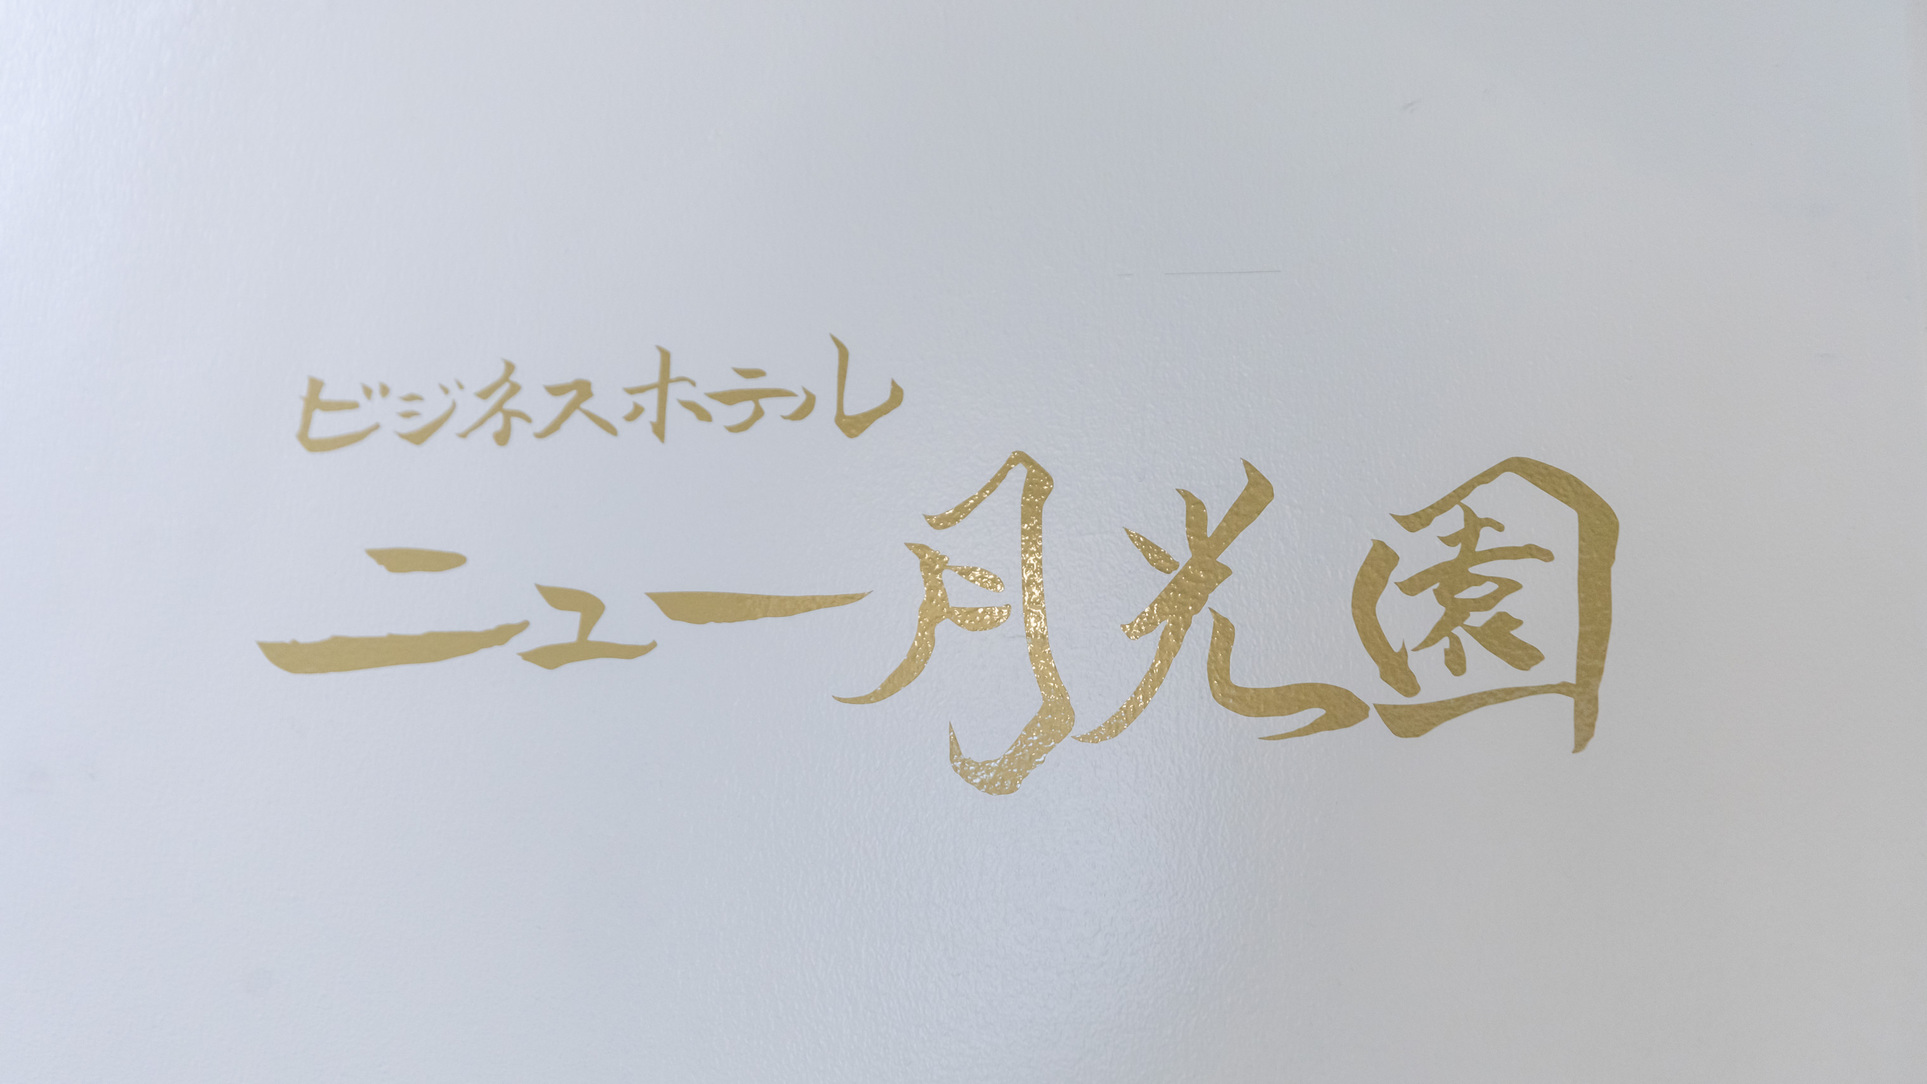 ビジネスホテル
ニュー月光園